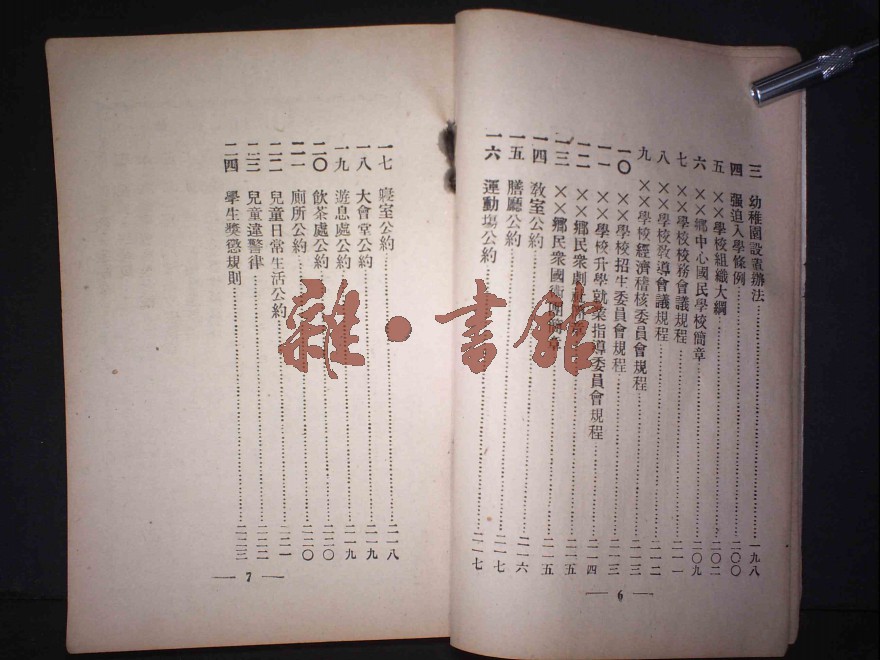 三 幼稚園設置辦法 一九八
四 强迫入學條例 二〇〇
五 ××學校組織大綱 二〇二
六 ××鄉中心國民學校簡章 二〇九
七 ××學校校務會議規程 二一一
八 ××學校敎導會議規程 二一二
九 ××學校經濟稽核委員會規程 二一三
一〇 ××學校招生委員會規程 二一三
一一 ××學校升學就業指導委員會規程 二一四
一二 ××鄉民衆劇 二一五
一三 ××鄉民衆國術團簡章 二一五
一四 敎室公約 二一六
一五 膳廳公約 二一七
一六 運動塲公約 二一七
— 6 —
一七 寢室公約 二一八
一八 大會堂公約 二一九
一九 遊息處公約 二一九
二〇 飲茶處公約 二二〇
二一 廁所公約 二二〇
二二 兒童日常生活公約 二二一
二三 兒童違警律 二二二
二四 學生獎懲規則 二二三
— 7 —
雜·書館